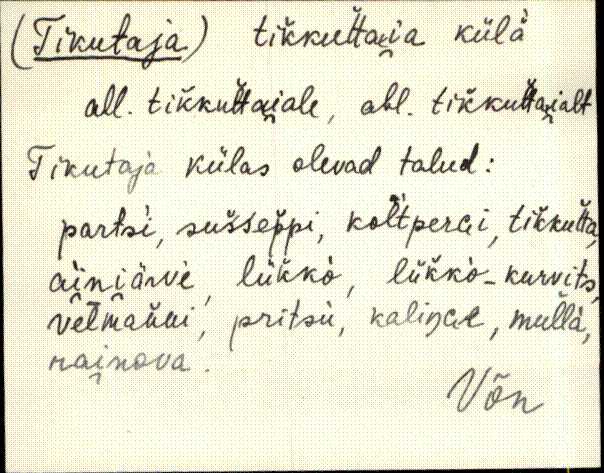 (Tikutaja) tik̆kut̆tai̯a külä
all. tik̆kut̆tai̯ale, abl. tik̆kut̆tai̯alt
Tikutaja külas olevad talud:
partsi, sus̆sep̆pi, kol̆tperɢi, tik̆kut̆ta,
äi̯ni̯ärve, lük̆kò, lük̆kò-kurvits,
vel̆man̆ni, pritsu, kaliŋɢe, mul̆lä,
nai̯nova.
Võn